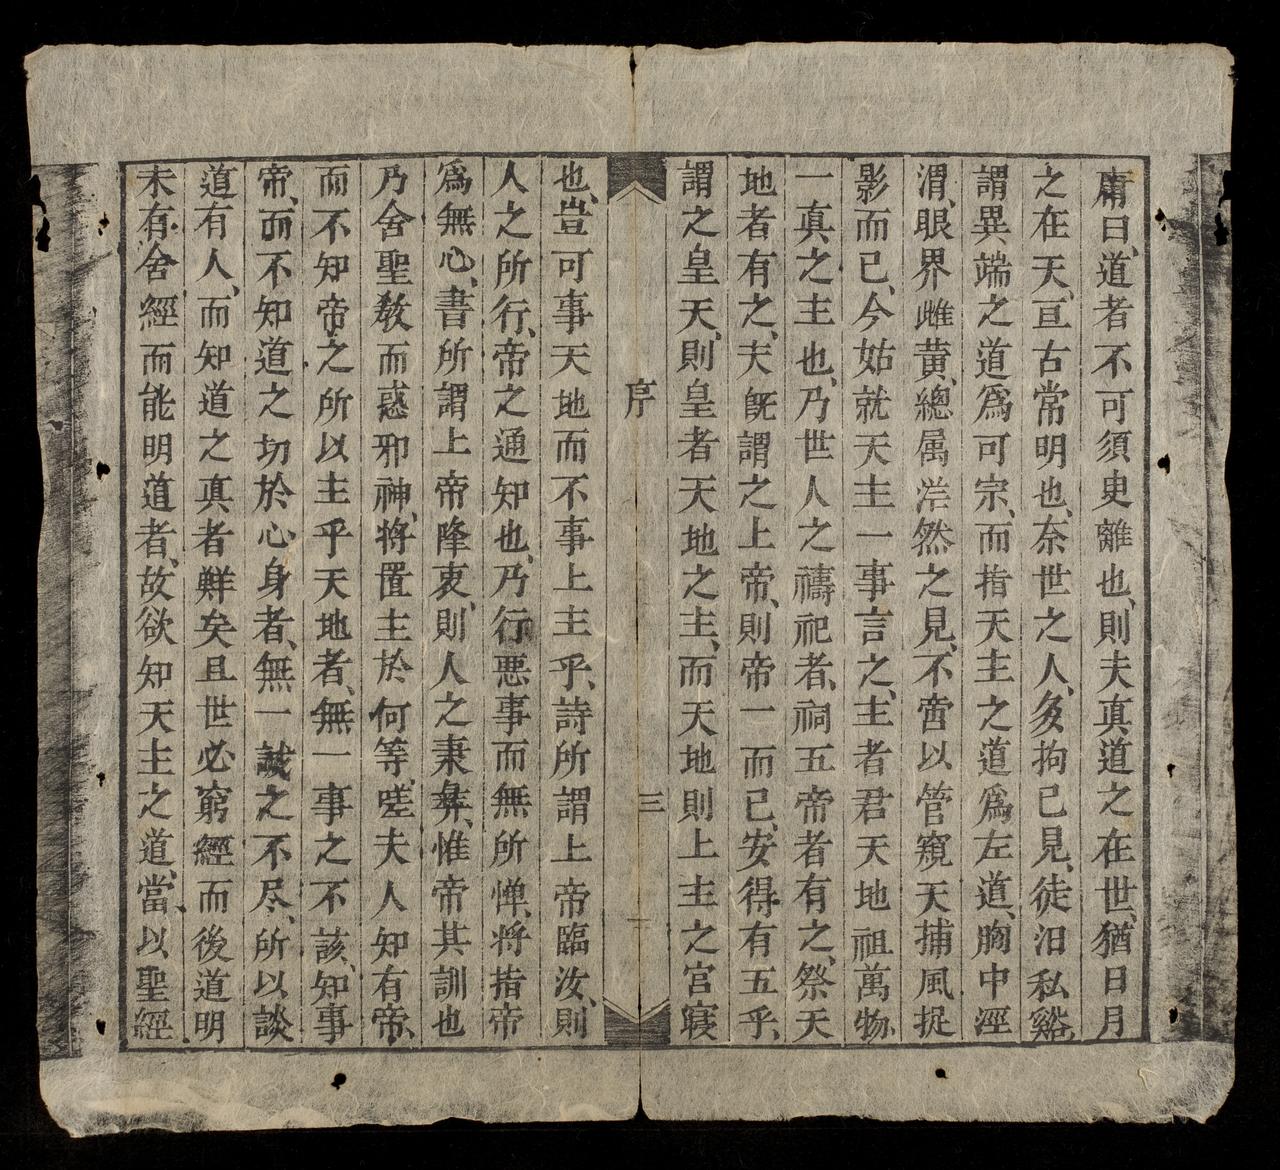 庸曰、道者不可須臾離也、則夫真道之在世、猶日月
之在天、亘古常明也、奈世之人、多拘己見、徒汨私谿、
謂異端之道為可宗、而指天主之道為左道、胸中涇
渭、眼界雌黄、總属茫然之見、不啻以管窺天捕風捉
影而已、今姑就天主一事言之、主者君天地祖萬物、
一真之主也、乃世人之禱祀者、祠五帝者有之、祭天
地者有之、夫旣謂之上帝、則帝一而已、安得有五乎、
謂之皇天、則皇者天地之主、而天地則上主之宫寢
序
三
也、豈可事天地而不事上主乎、詩所謂上帝臨汝、則
人之所行、帝之通知也、乃行悪事而無所憚、將指帝
為無心、書所謂上帝降衷、則人之秉彝、惟帝其訓也
乃舍聖敎而惑邪神、將置主於何等、嗟夫人知有帝、
而不知帝之所以主乎天地者、無一事之不該、知事
帝、而不知道之切於心身者、無一誠之不尽、所以談
道有人、而知道之真者鮮矣且世必窮經而後道明
未有舍經而能明道者、故欲知天主之道、當以聖經